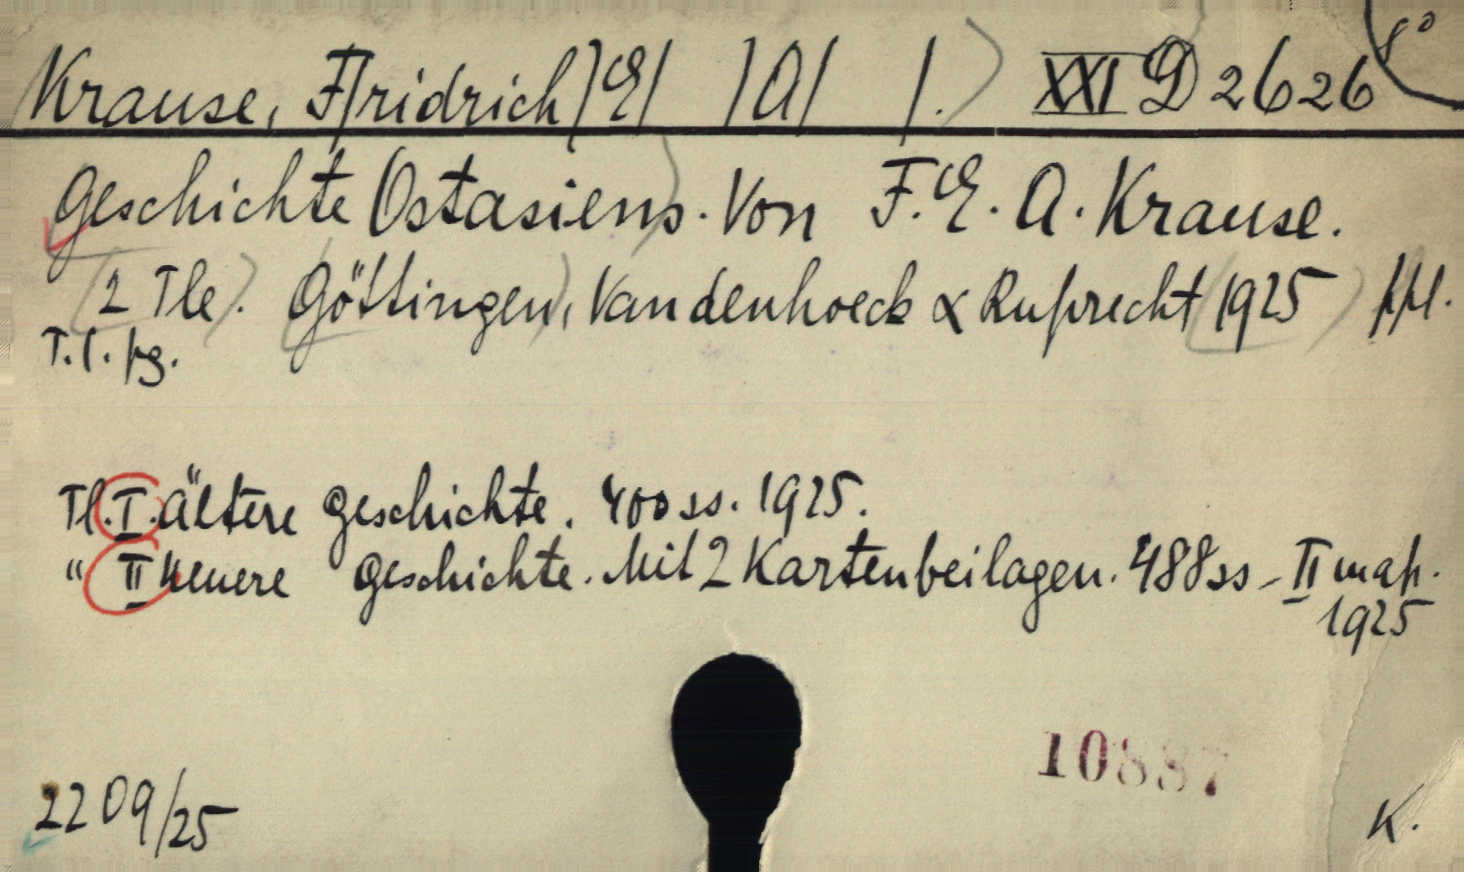 Krause, F/ridrich/ E/ /A/ /.) XXI D 2626 8°
Geschichte Ostasiens. Von F. E. A. Krause.
(2 Tle). Göttingen, Vandenhoeck & Ruprecht 1925 ppl.
T.1. pg.
Tl. I. Ältere Geschichte. 400 ss. 1925.
" II Neuere Geschichte. Mit 2 Kartenbeilagen. 488 ss - II map.
1925
10887
2209/25
K.